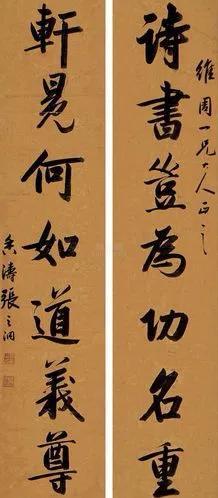 維周一兄大人正之
詩書豈為功名重
軒冕何如道義尊
香濤張之洞